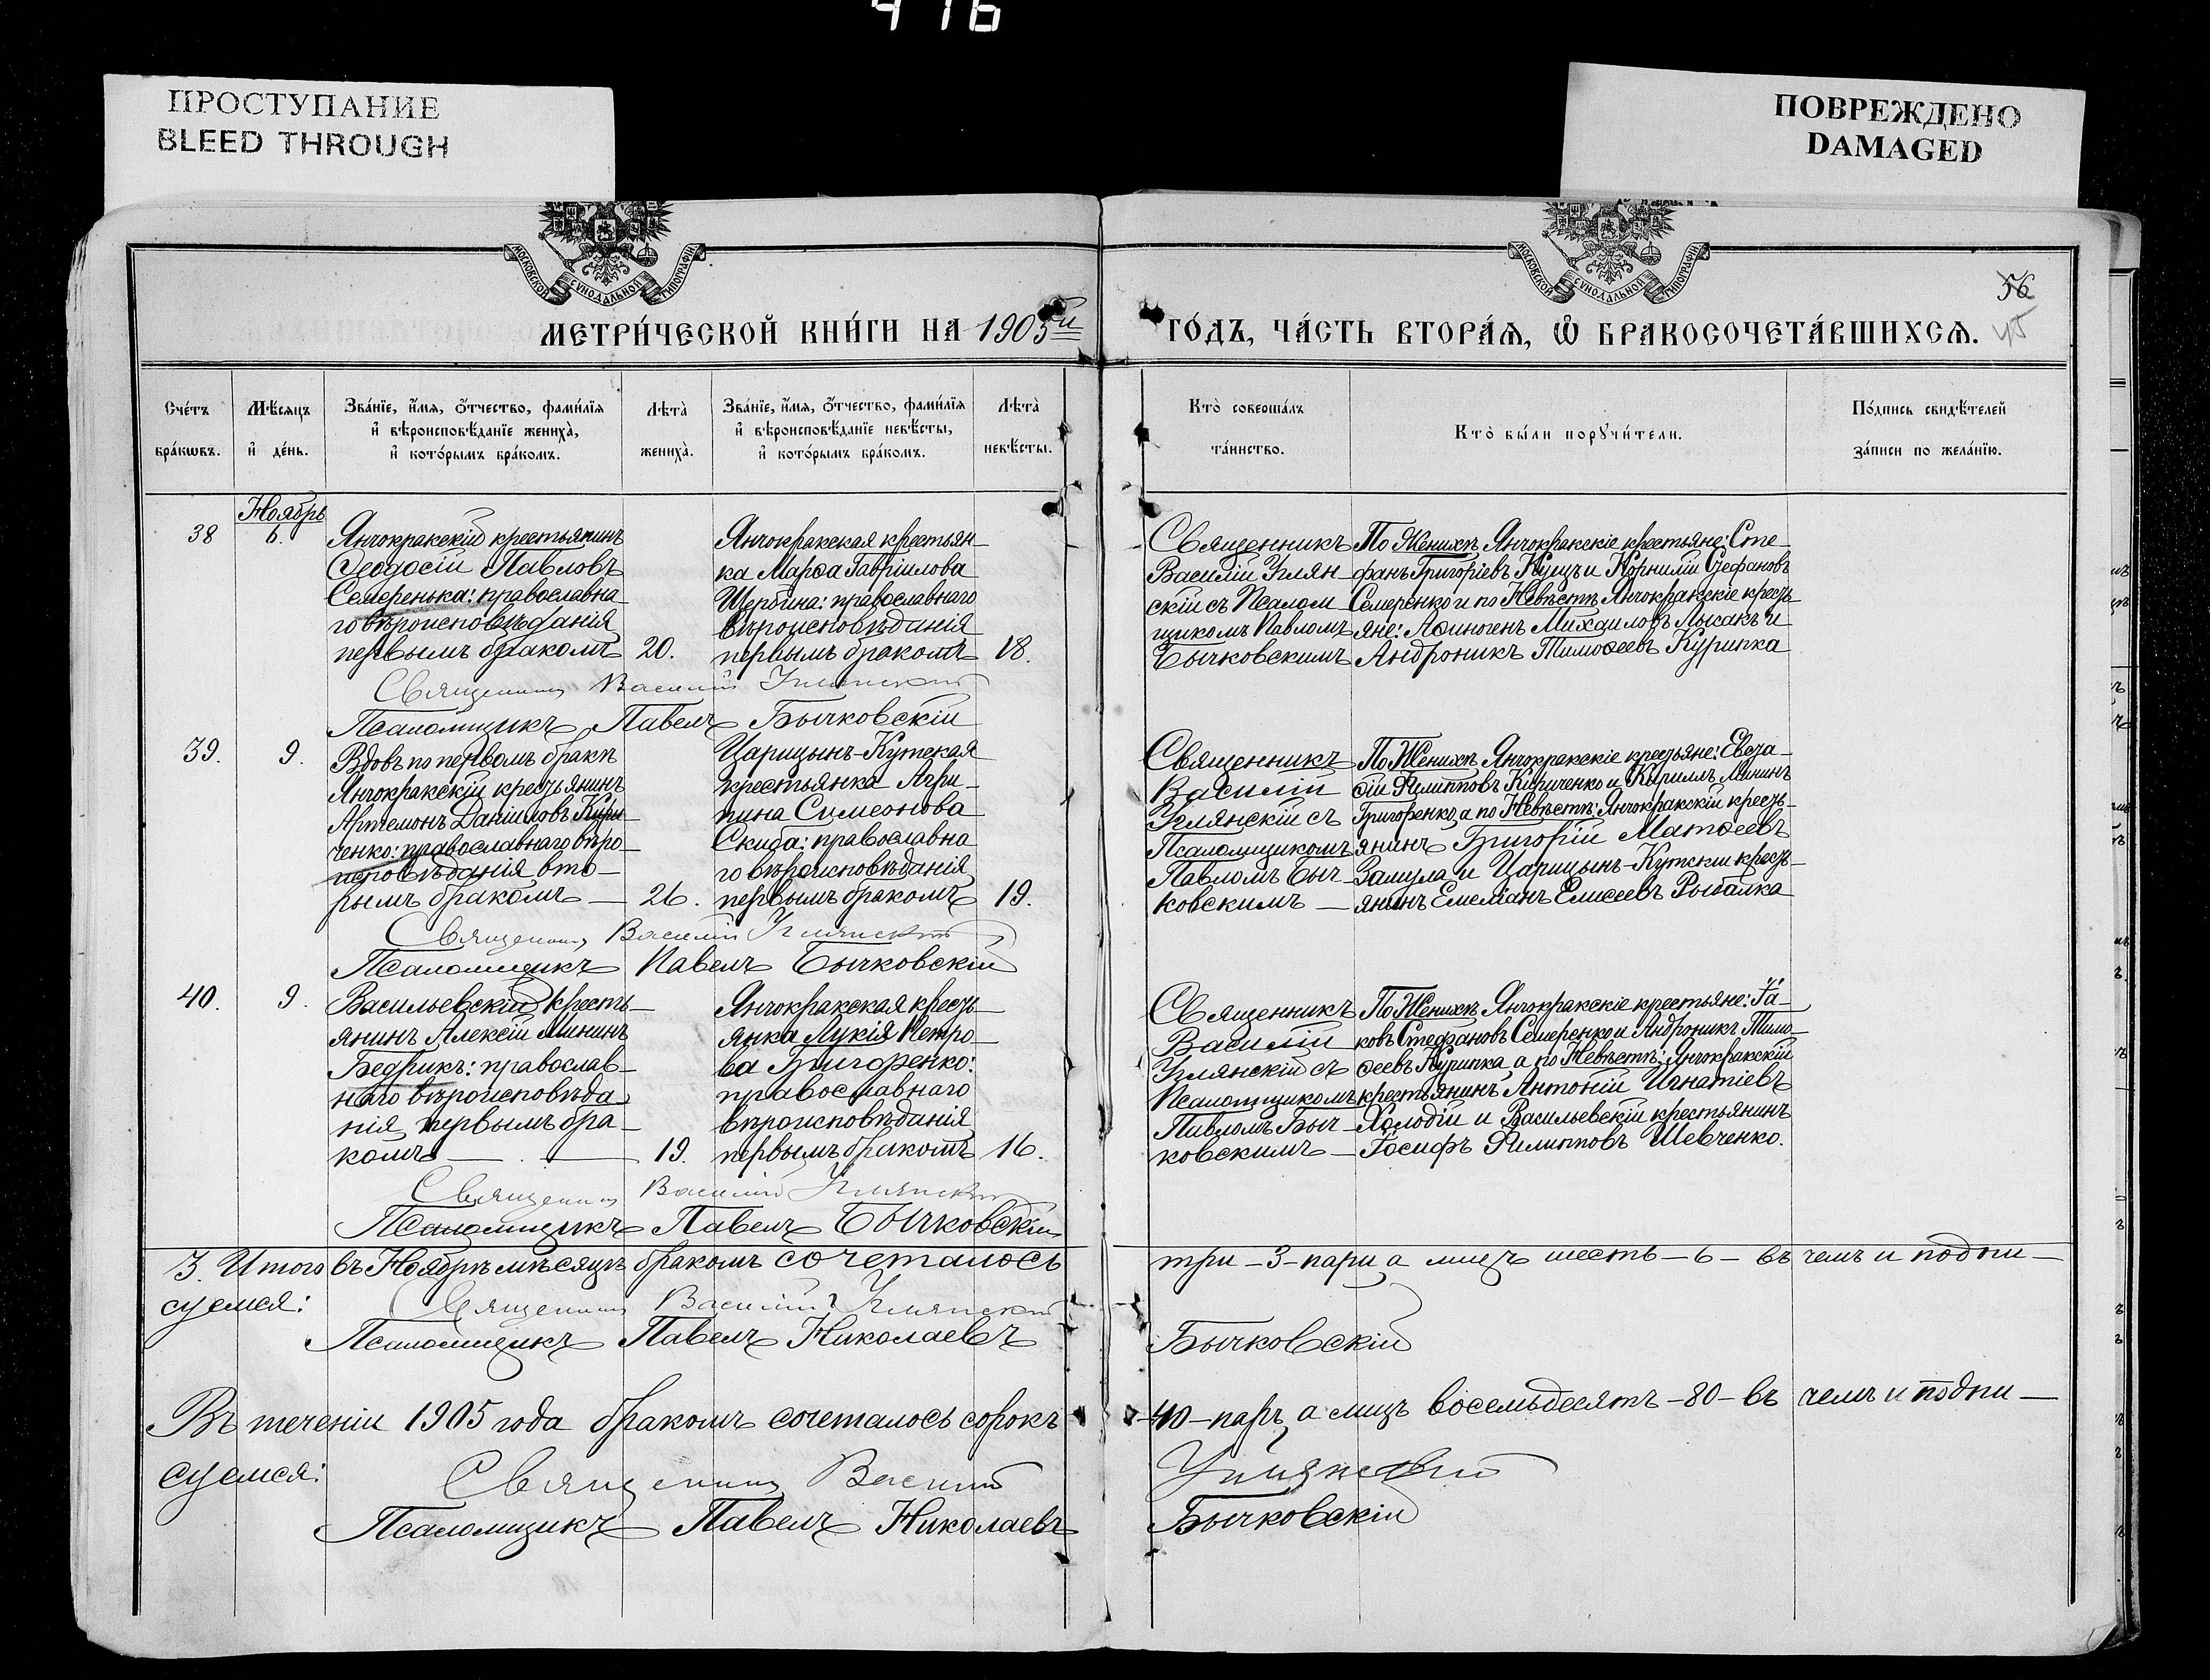 416
ПРОСТУПАНИЕ
BLEED THROUGH
ПОВРЕЖДЕНО
DAMAGED
МОСКОВСКОЙ СѴНОДАЛЬНОЙ ТИПОГРАФІИ
МОСКОВСКОЙ СѴНОДАЛЬНОЙ ТИПОГРАФІИ
56
45
МЕТРИ́ЧЕСКОЙ КНИ́ГИ НА 1905й
ГО́ДЪ, ЧА́СТЬ ВТОРА́Ѧ, Ѿ БРАКОСОЧЕТА́ВШИХСѦ.
Сче́тъ бра́кѡвъ.
Мѣ́сяцъ и҆ де́нь.
Зва́нїе, и҆́мя, ѻ҆́тчество, фами́лїя
и҆ вѣроисповѣ́данїе жениха̀,
и҆ кото́рымъ бра́комъ.
Лѣта̀ жениха̀.
Зва́нїе, и҆́мя, ѻ҆́тчество, фами́лїя
и҆ вѣроисповѣ́данїе невѣ́сты,
и҆ кото́рымъ бра́комъ.
Лѣта̀ невѣ́сты.
Кто̀ соверша́лъ та́инство.
Кто̀ бы́ли порꙋчи́тели.
По́дпись свидѣ́телей за́писи по жела́нїю.
Ноябрь
38
6.
Янчокракскій крестьянинъ
Ѳеодосій Павловъ
Семеренька: православна-
го вѣроисповѣданія
первымъ бракомъ
20.
Янчокракская крестьян-
ка Марѳа Гавріилова
Щербина: православнаго
вѣроисповѣданія
первымъ бракомъ
18.
Священникъ
Василій Углян-
скій съ Псалом-
щикомъ Павломъ
Бычковскимъ
По Женихѣ Янчокракскіе крестьяне: Сте-
фанъ Григоріевъ Кущъ и Корнилій Стефановъ
Семеренко и по Невѣстѣ Янчокракскіе кресть-
яне: Аѳиногенъ Михаиловъ Лысакъ и
Андроникъ Тимоѳеевъ Курипка
Священникъ Василій Углянскій
Псаломщикъ Павелъ Бычковскій
39.
9.
Вдовъ по первомъ бракѣ
Янчокракскій крестьянинъ
Артемонъ Даніиловъ Кири-
ченко: православнаго вѣро-
исповѣданія вто-
рымъ бракомъ —
26.
Царицынъ-Кутская
крестьянка Агри-
пина Симеонова
Скиба: православна
го вѣроисповѣданія
первымъ бракомъ
19.
Священникъ
Василій
Углянскій съ
Псаломщикомъ
Павломъ Быч-
ковскимъ —
По Женихѣ Янчокракскіе крестьяне: Евста-
ѳій Филипповъ Кириченко и Кириллъ Мининъ
Григоренко, а по Невѣстѣ: Янчокракскій кресть-
янинъ Григорій Матѳеевъ
Замула и Царицынъ-Кутскій кресть-
янинъ Емеліанъ Елисеевъ Рыбалка
Священникъ Василій Углянскій
Псаломщикъ Павелъ Бычковскій
40.
9.
Васильевскій кресть-
янинъ Алексій Мининъ
Бедрикъ: православ-
наго вѣроисповѣда
нія, первымъ бра-
комъ —
19.
Янчокракская кресть-
янка Лукія Петро-
ва Григоренко:
православнаго
вѣроисповѣданія
первымъ бракомъ
16.
Священникъ
Василій
Углянскій съ
Псаломщикомъ
Павломъ Быч-
ковскимъ —
По Женихѣ Янчокракскіе крестьяне: Іа-
ковъ Стефановъ Семеренко и Андроникъ Тимо-
ѳеевъ Курипка, а по Невѣстѣ: Янчокракскій
крестьянинъ Антоній Игнатіевъ
Холодій и Васильевскій крестьянинъ
Іосифъ Филипповъ Шевченко.
Священникъ Василій Углянскій
Псаломщикъ Павелъ Бычковскій
3. Итого въ Ноябрѣ мѣсяцѣ бракомъ сочеталось три – 3 – пари, а лицъ шесть – 6 – въ чемъ и подпи-
суемся: Священникъ Василій Углянскій
Псаломщикъ Павелъ Николаевъ Бычковскій
Въ теченіи 1905 года бракомъ сочеталось сорокъ – 40 – паръ, а лицъ восемьдесятъ – 80 – въ чемъ и подпи-
суемся: Священникъ Василій Углянскій
Псаломщикъ Павелъ Николаевъ Бычковскій